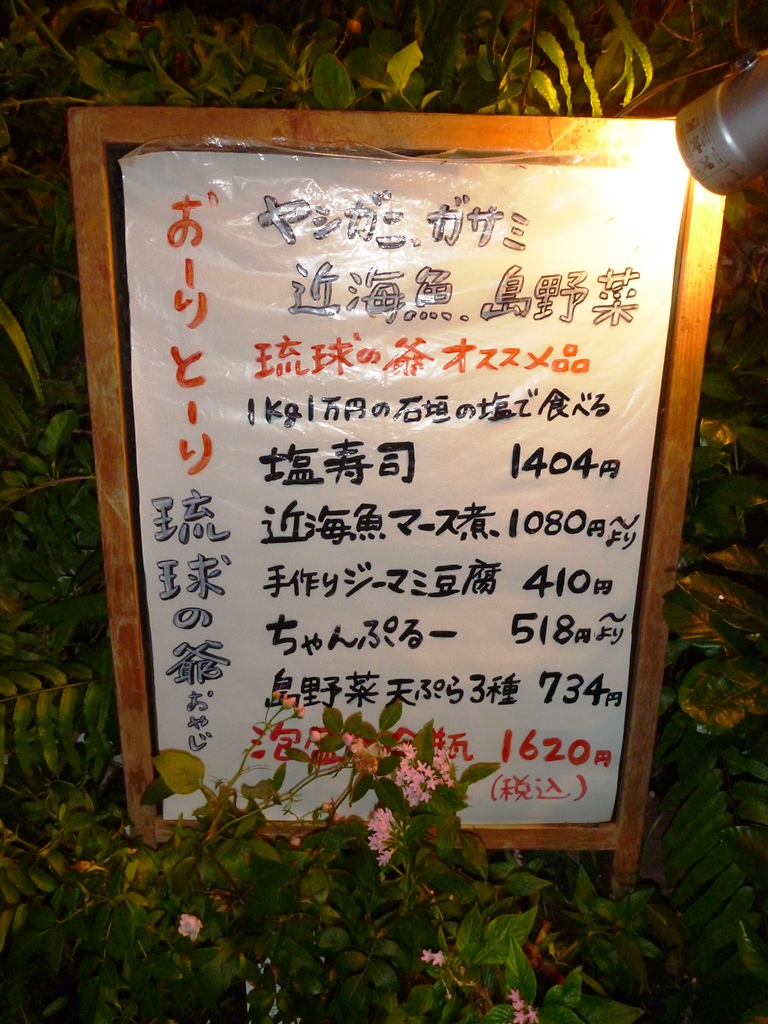 おーりとーり
琉球の爺
おやじ
ヤシガニ、ガサミ
近海魚、島野菜
琉球の爺オススメ品
1kg1万円の石垣の塩で食べる
塩寿司 1404円
近海魚マース煮 1080円〜より
手作りジーマミ豆腐 410円
ちゃんぷるー 518円〜より
島野菜天ぷら3種 734円
泡盛 瓶 1620円
(税込)